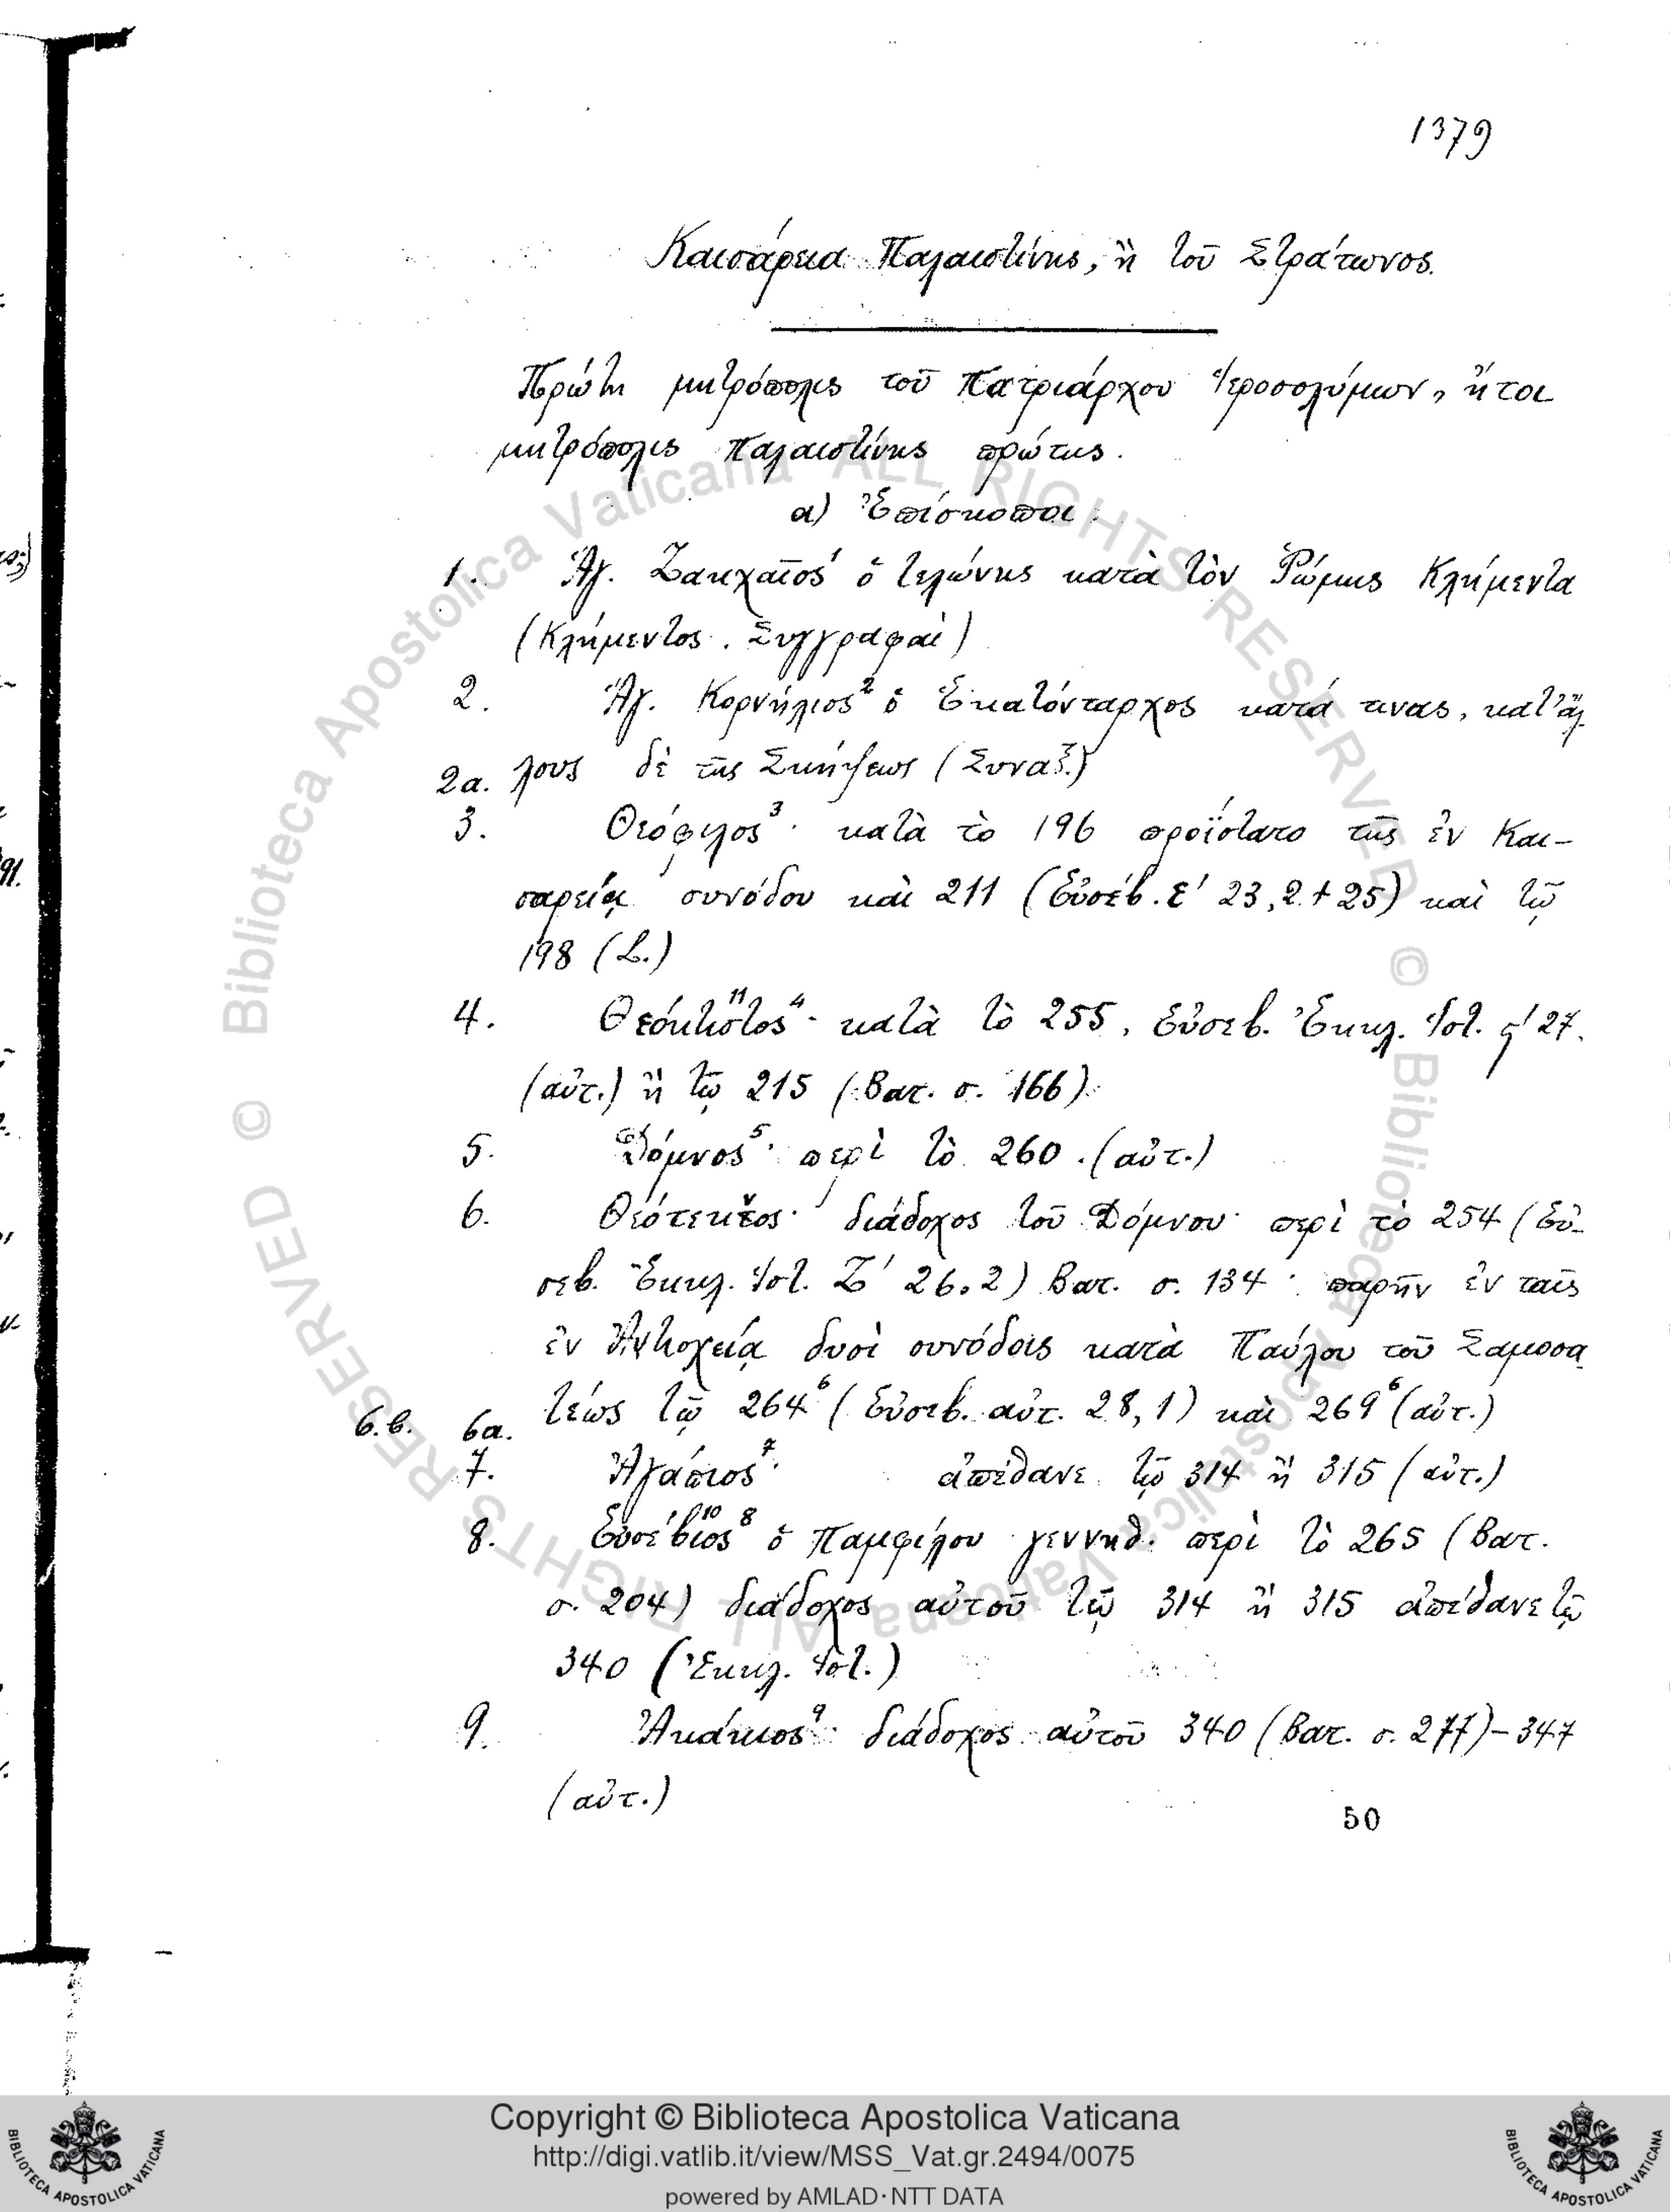 1379
Καισάρεια Παλαιστίνης, ἢ τοῦ Στράτωνος.
Πρώτη μητρόπολις τοῦ Πατριάρχου Ἱεροσολύμων, ἤτοι
μητρόπολις Παλαιστίνης πρώτης.
α) Ἐπίσκοποι.
1. Ἅγ. Ζακχαῖος¹ ὁ τελώνης κατὰ τὸν Ῥώμης Κλήμεντα
(Κλήμεντος. Συγγραφαὶ)
2. Ἅγ. Κορνήλιος² ὁ Ἑκατόνταρχος κατά τινας, κατ' ἄλ
2α. λους δὲ τῆς Σκήψεως (Συναξ.)
3. Θεόφιλος³· κατὰ τὸ 196 προΐστατο τῆς ἐν Και-
σαρείᾳ συνόδου καὶ 211 (Εὐσέβ. Ε' 23,2 + 25) καὶ τῷ
198 (L.)
4. Θεόκτιστος¹¹ ⁴· κατὰ τὸ 255, Εὐσεβ. Ἐκκλ. Ἱστ. ϛ' 27.
(αὐτ.) ἢ τῷ 215 (Βατ. σ. 166)
5. Δόμνος⁵· περὶ τὸ 260. (αὐτ.)
6. Θεότεκνος· διάδοχος τοῦ Δόμνου· περὶ τὸ 254 (Εὐ-
σεβ. Ἐκκλ. Ἱστ. Ζ' 26.2) Βατ. σ. 134· παρῆν ἐν ταῖς
ἐν Ἀντιοχείᾳ δυσὶ συνόδοις κατὰ Παύλου τοῦ Σαμοσα
6.β. 6α. τέως τῷ 264⁶ (Εὐσεβ. αὐτ. 28,1) καὶ 269⁶ (αὐτ.)
7. Ἀγάπιος⁷· ἀπέθανε τῷ 314 ἢ 315 (αὐτ.)
8. Εὐσέβιος¹⁰ ⁸ ὁ Παμφίλου γεννηθ. περὶ τὸ 265 (Βατ.
σ. 204) διάδοχος αὐτοῦ τῷ 314 ἢ 315 ἀπέθανε τῷ
340 (Ἐκκλ. Ἱστ.)
9. Ἀκάκιος⁹· διάδοχος αὐτοῦ 340 (Βατ. σ. 277) – 347
(αὐτ.)
50
© Biblioteca Apostolica Vaticana ALL RIGHTS RESERVED © Biblioteca Apostolica Vaticana ALL RIGHTS RESERVED
Copyright © Biblioteca Apostolica Vaticana
http://digi.vatlib.it/view/MSS_Vat.gr.2494/0075
powered by AMLAD·NTT DATA
BIBLIOTECA APOSTOLICA VATICANA
BIBLIOTECA APOSTOLICA VATICANA